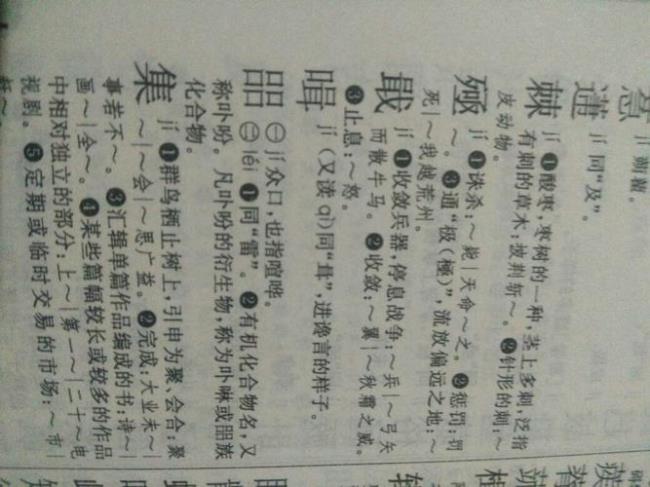 jí 蒴藋。
jí 同“及”。
棘 jí ❶酸枣,枣树的一种,茎上多刺,泛指
有刺的草木:披荆斩～。❷针形的刺:～
皮动物。
殛 jí ❶诛杀:～毙|天命～之。❷惩罚:罚
～。❸通“极(極)”,流放偏远之地:～
死|～我越荒州。
戢 jí ❶收敛兵器,停息战争:～兵|～弓矢
而散牛马。❷收敛:～翼|～秋霜之威。
❸止息:～怒。
jí (又读qì)同“咠”,进谗言的样子。
㗊 ㊀jí 众口,也指喧哗。
㊁léi ❶同“雷”。❷有机化合物名,又
称卟吩。凡卟吩的衍生物,称为卟啉或㗊族
化合物。
集 jí ❶群鸟栖止树上,引申为聚、会合:聚
～|～会|～思广益。❷完成:大业未～|
事若不～。❸汇辑单篇作品编成的书:诗～|
画～|全～。❹某些篇幅较长或较多的作品
中相对独立的部分:上～|第一～|二十～电
视剧。❺定期或临时交易的市场:～市|
赶～。